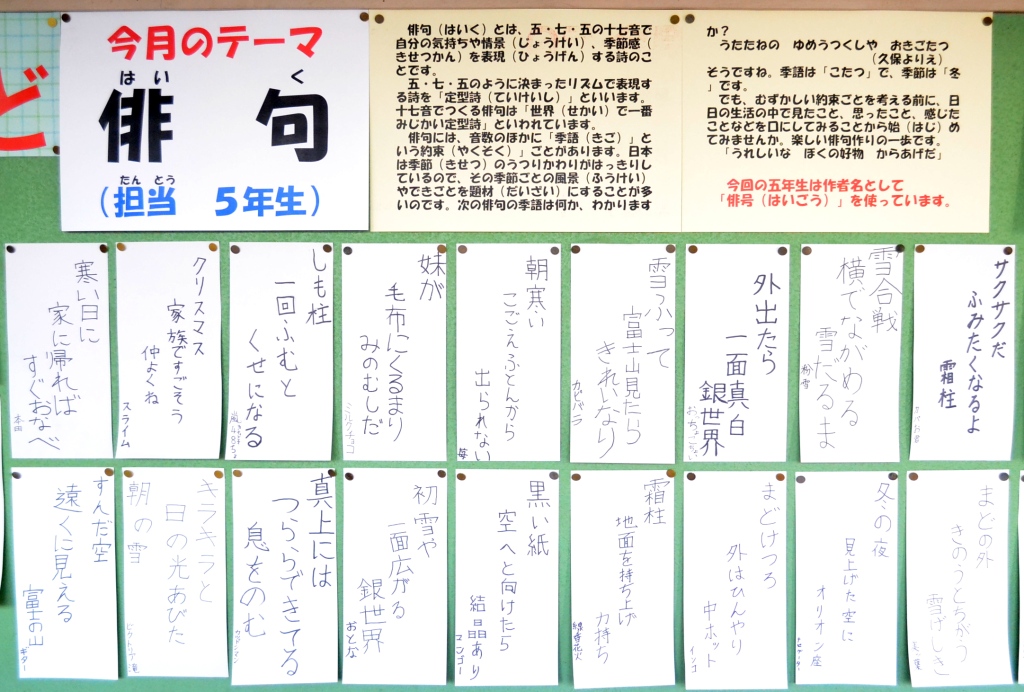 ど
今月のテーマ
はい く
俳 句
たん とう
（担当 ５年生）
俳句（はいく）とは、五・七・五の十七音で
自分の気持ちや情景（じょうけい）、季節感（
きせつかん）を表現（ひょうげん）する詩のこ
とです。
五・七・五のように決まったリズムで表現す
る詩を「定型詩（ていけいし）」といいます。
十七音でつくる俳句は「世界（せかい）で一番
みじかい定型詩」といわれています。
俳句には、音数のほかに「季語（きご）」と
いう約束（やくそく）ごとがあります。日本
は季節（きせつ）のうつりかわりがはっきりし
ているので、その季節ごとの風景（ふうけい）
やできごとを題材（だいざい）にすることが多
いのです。次の俳句の季語は何か、わかります
か？
うたたねの ゆめうつくしや おきごたつ
（久保よりえ）
そうですね。季語は「こたつ」で、季節は「冬
」です。
でも、むずかしい約束ごとを考える前に、日
日の生活の中で見たこと、思ったこと、感じた
ことなどを口にしてみることから始（はじ）め
てみませんか。楽しい俳句作りの一歩です。
「うれしいな ぼくの好物 からあげだ」
今回の五年生は作者名として
「俳号（はいごう）」を使っています。
サクサクだ
ふみたくなるよ
霜柱
雪合戦
横でながめる
雪だるま
粉雪
外出たら
一面真白
銀世界
雪ふって
富士山見たら
きれいなり
カピバラ
朝寒い
こごえふとんから
出られない
苺
妹が
毛布にくるまり
みのむしだ
しも柱
一回ふむと
くせになる
クリスマス
家族ですごそう
仲よくね
スライム
寒い日に
家に帰れば
すぐおなべ
本田
まどの外
きのうとちがう
雪げしき
冬の夜
見上げた空に
オリオン座
まどけつろ
外はひんやり
中ホット
インコ
霜柱
地面を持ち上げ
力持ち
線香花火
黒い紙
空へと向けたら
結晶あり
マンゴー
初雪や
一面広がる
銀世界
おとな
真上には
つららできてる
息をのむ
キラキラと
日の光あびた
朝の雪
ビクトリア滝
すんだ空
遠くに見える
富士の山
ギター